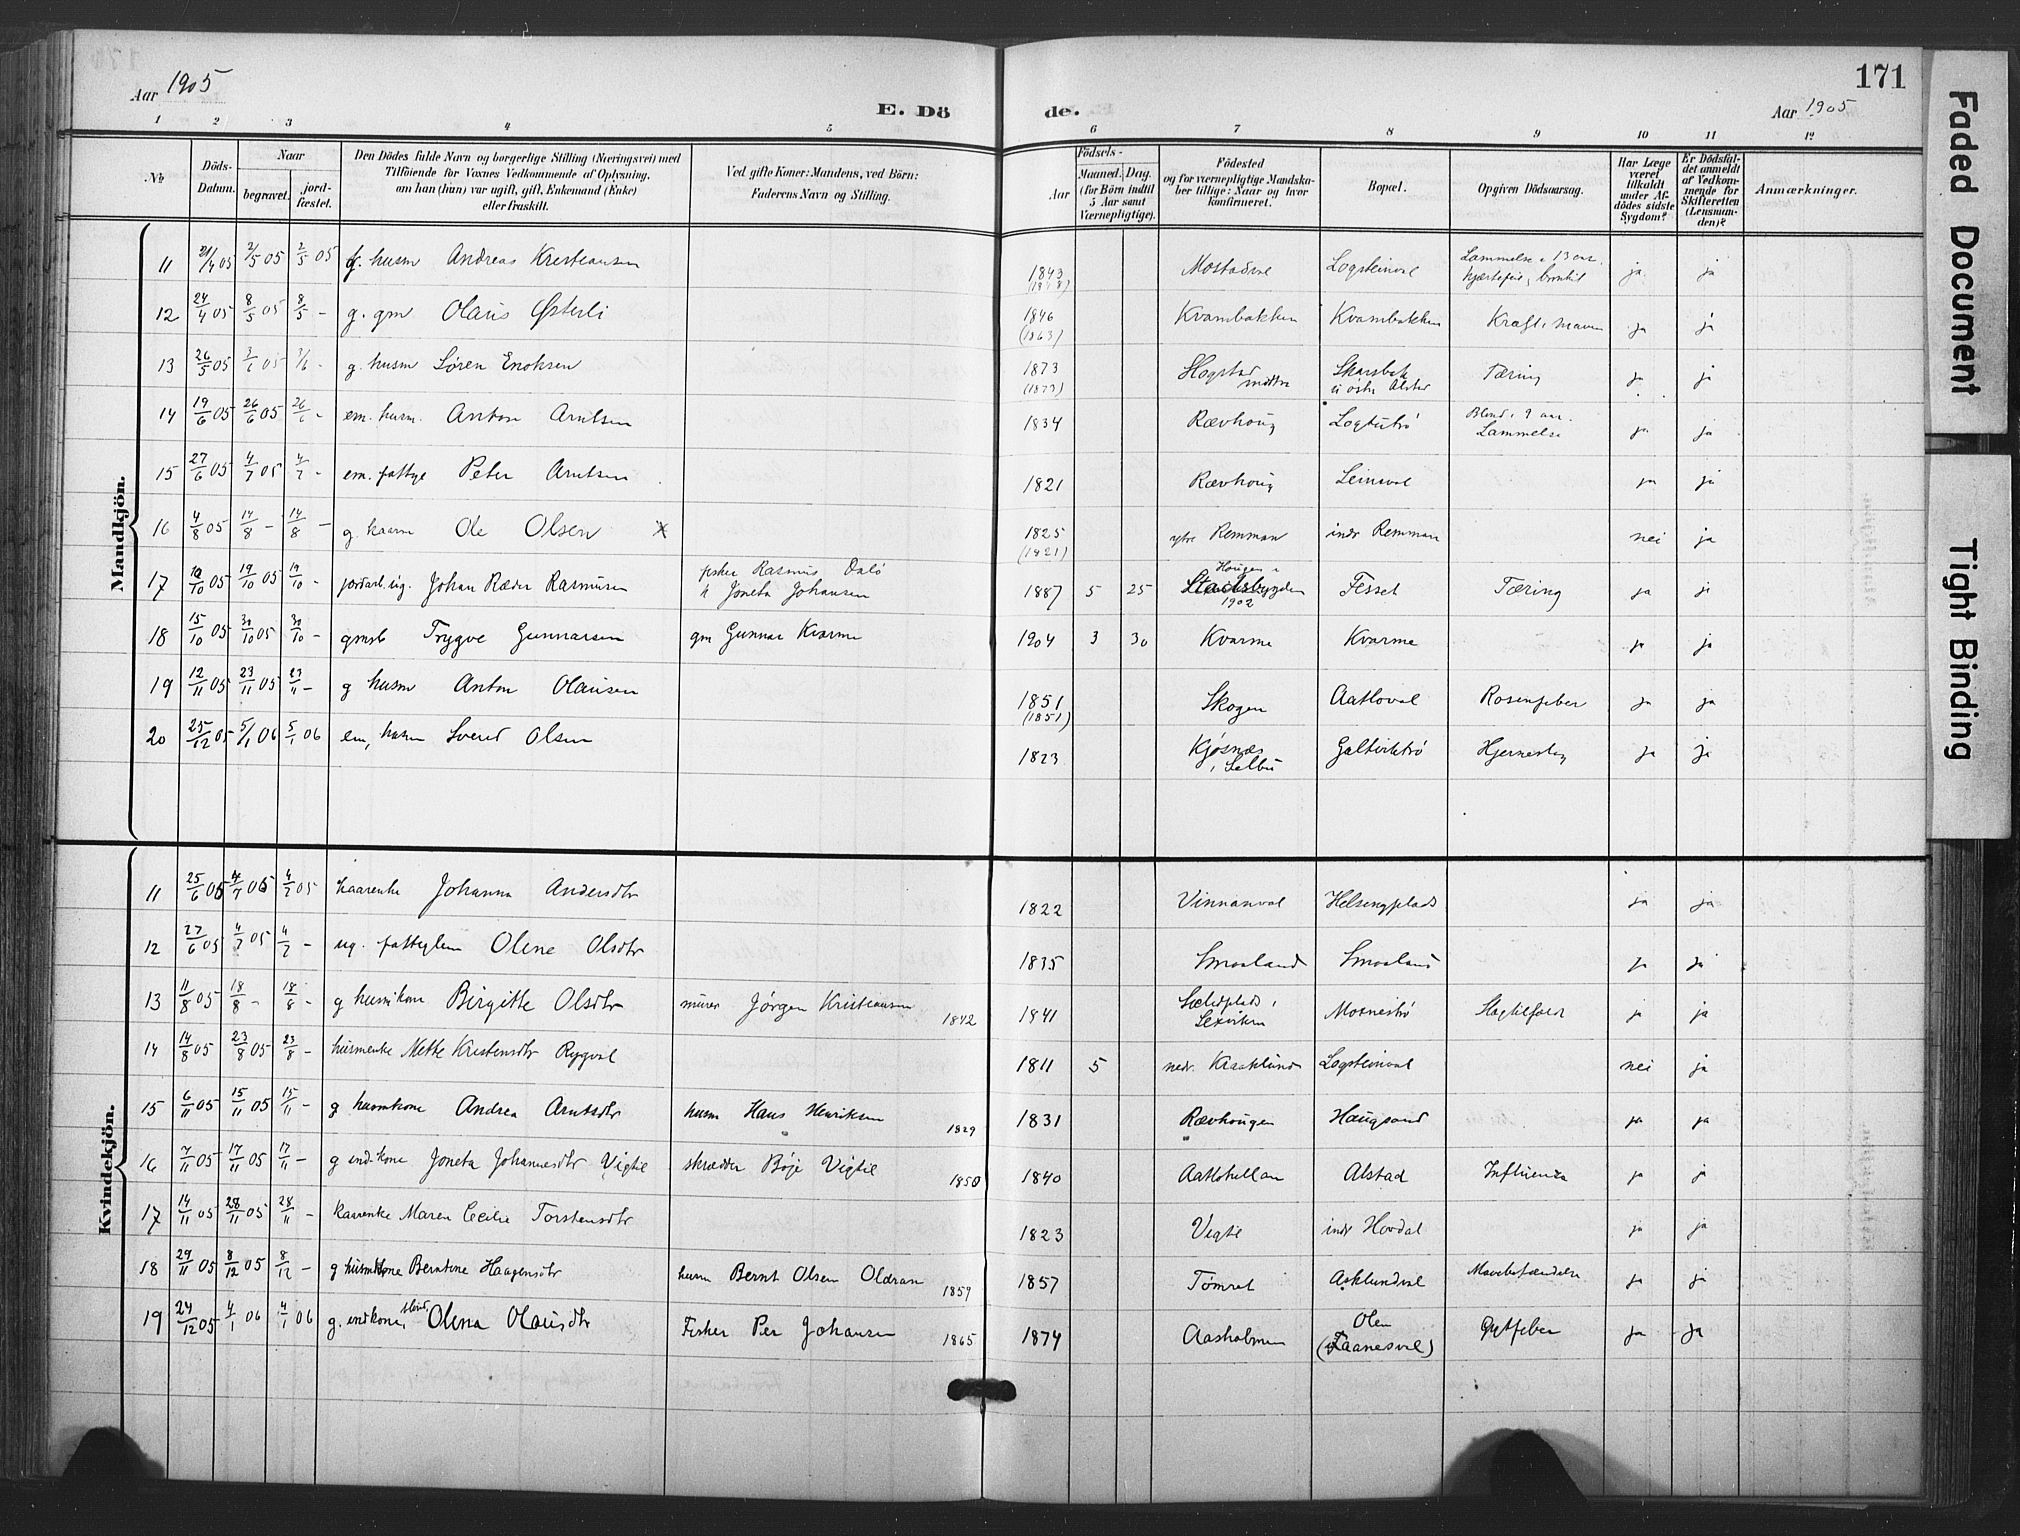 Aar 1905
E. Döde.
171
Aar 1905
1 2 3 4 5 6 7 8 9 10 11 12
№
Döds-Datum.
Naar
begravet.
jord-fæstet.
Den Dödes fulde Navn og borgerlige Stilling (Næringsvei) med
Tilföiende for Voxnes Vedkommende af Oplysning,
om han (hun) var ugift, gift, Enkemand (Enke)
eller fraskilt.
Ved gifte Koner: Mandens, ved Börn:
Faderens Navn og Stilling.
Födsels-
Aar
Maaned. Dag.
(for Börn indtil
5 Aar samt
Værnepligtige).
Födested
og for værnepligtige Mandskaber tillige: Naar og hvor
konfirmeret.
Bopæl.
Opgiven Dödsaarsag.
Har Læge
været
tilkaldt
under Afdödes sidste
Sygdom?
Er Dödsfaldet anmeldt
af Vedkommende for
Skifteretten
(Lensmanden)?
Anmærkninger.
Mandkjön.
11 21/4 05 2/5 05 2/5 05 g. husm Andreas Kristiansen 1843 Mostadval Logsteinval Lammelse i 13 aar, hjertefeil, bronkit ja ja
12 24/4 05 8/5 05 8/5 - g. gm Olaus Østerli 1846 (1863) Kvambakken Kvambakken Kræft i maven ja ja
13 26/5 05 3/6 05 3/6 - g. husm Søren Enoksen 1873 (1873) Hogstad midtre Skarsbak i østre Alstad Tæring ja ja
14 19/6 05 26/6 05 26/6 - em. husm. Anton Arntsen 1834 Rævhoug Logtutrø Blind i 9 aar. Lammelse ja ja
15 27/6 05 4/7 05 4/7 - em. fattige Peter Arntsen 1821 Rævhoug Leinsval ja ja
16 4/8 05 14/8 - 14/8 - g. kaarm Ole Olsen X 1825 (1821) ytre Remman indr Remman nei ja
17 10/10 05 19/10 05 19/10 - jordarb. ug. Johan Ræder Rasmusen fisker Rasmus Dalø h Joneta Johansen 1887 5 25 Hougen i Stadsbygden 1902 Fesset Tæring ja ja
18 15/10 05 30/10 05 30/10 - gmsb Trygve Gunnarsen gm Gunnar Kvarme 1904 3 30 Kvarme Kvarme ja ja
19 12/11 05 23/11 05 23/11 - g husm Anton Olausen 1851 (1851) Skogen Aatloval Rosenfeber ja ja
20 25/12 05 5/1 06 5/1 06 em, husm Sverd Olsen 1823 Kjøsnæs i Selbu Galtviktrø Hjerneslag ja ja
Kvindekjön.
11 25/6 05 4/7 05 4/7 05 kaarenke Johanna Andersdtr 1822 Vinnanval Helsingplads ja ja
12 27/6 05 4/7 05 4/7 - ug. fattiglem Olene Olsdtr 1835 Smaaland Smaaland ja ja
13 11/8 05 18/8 - 18/8 - g husmkone Birgitte Olsdtr murer Jørgen Kristiansen 1842 1841 Lexviken Mosnestrø Slagtilfælde ja ja
14 14/8 05 23/8 05 23/8 - husmenke Mette Kristensdtr Rygval 1811 5 nedr. Kraaklund Logsteinval nei ja
15 6/11 05 15/11 05 15/11 - g husmkone Andrea Arntsdtr husm Hans Henriksen 1829 1831 Rævhougen Haugsand ja ja
16 7/11 05 17/11 05 17/11 - g indkone Joneta Johannesdtr Vigtil skrædder Bøje Vigtil 1850 1840 Aatlohellan Alstad Influenza ja ja
17 14/11 05 28/11 05 28/11 - kaarenke Maren Cecilie Torstensdtr 1823 Vigtil indr Hovdal ja ja
18 29/11 05 8/12 05 8/12 - g husmkone Berntine Haagensdtr husm Bernt Olsen Oldran 1859 1857 Tømret Asklundval Mavebetændelse ja ja
19 24/12 05 4/1 06 4/1 06 g. indkone, Olina Olausdtr Fisker Per Johansen 1865 1874 Aasholmen Olen (Faanesval) Gigtfeber ja ja
Faded Document
Tight Binding